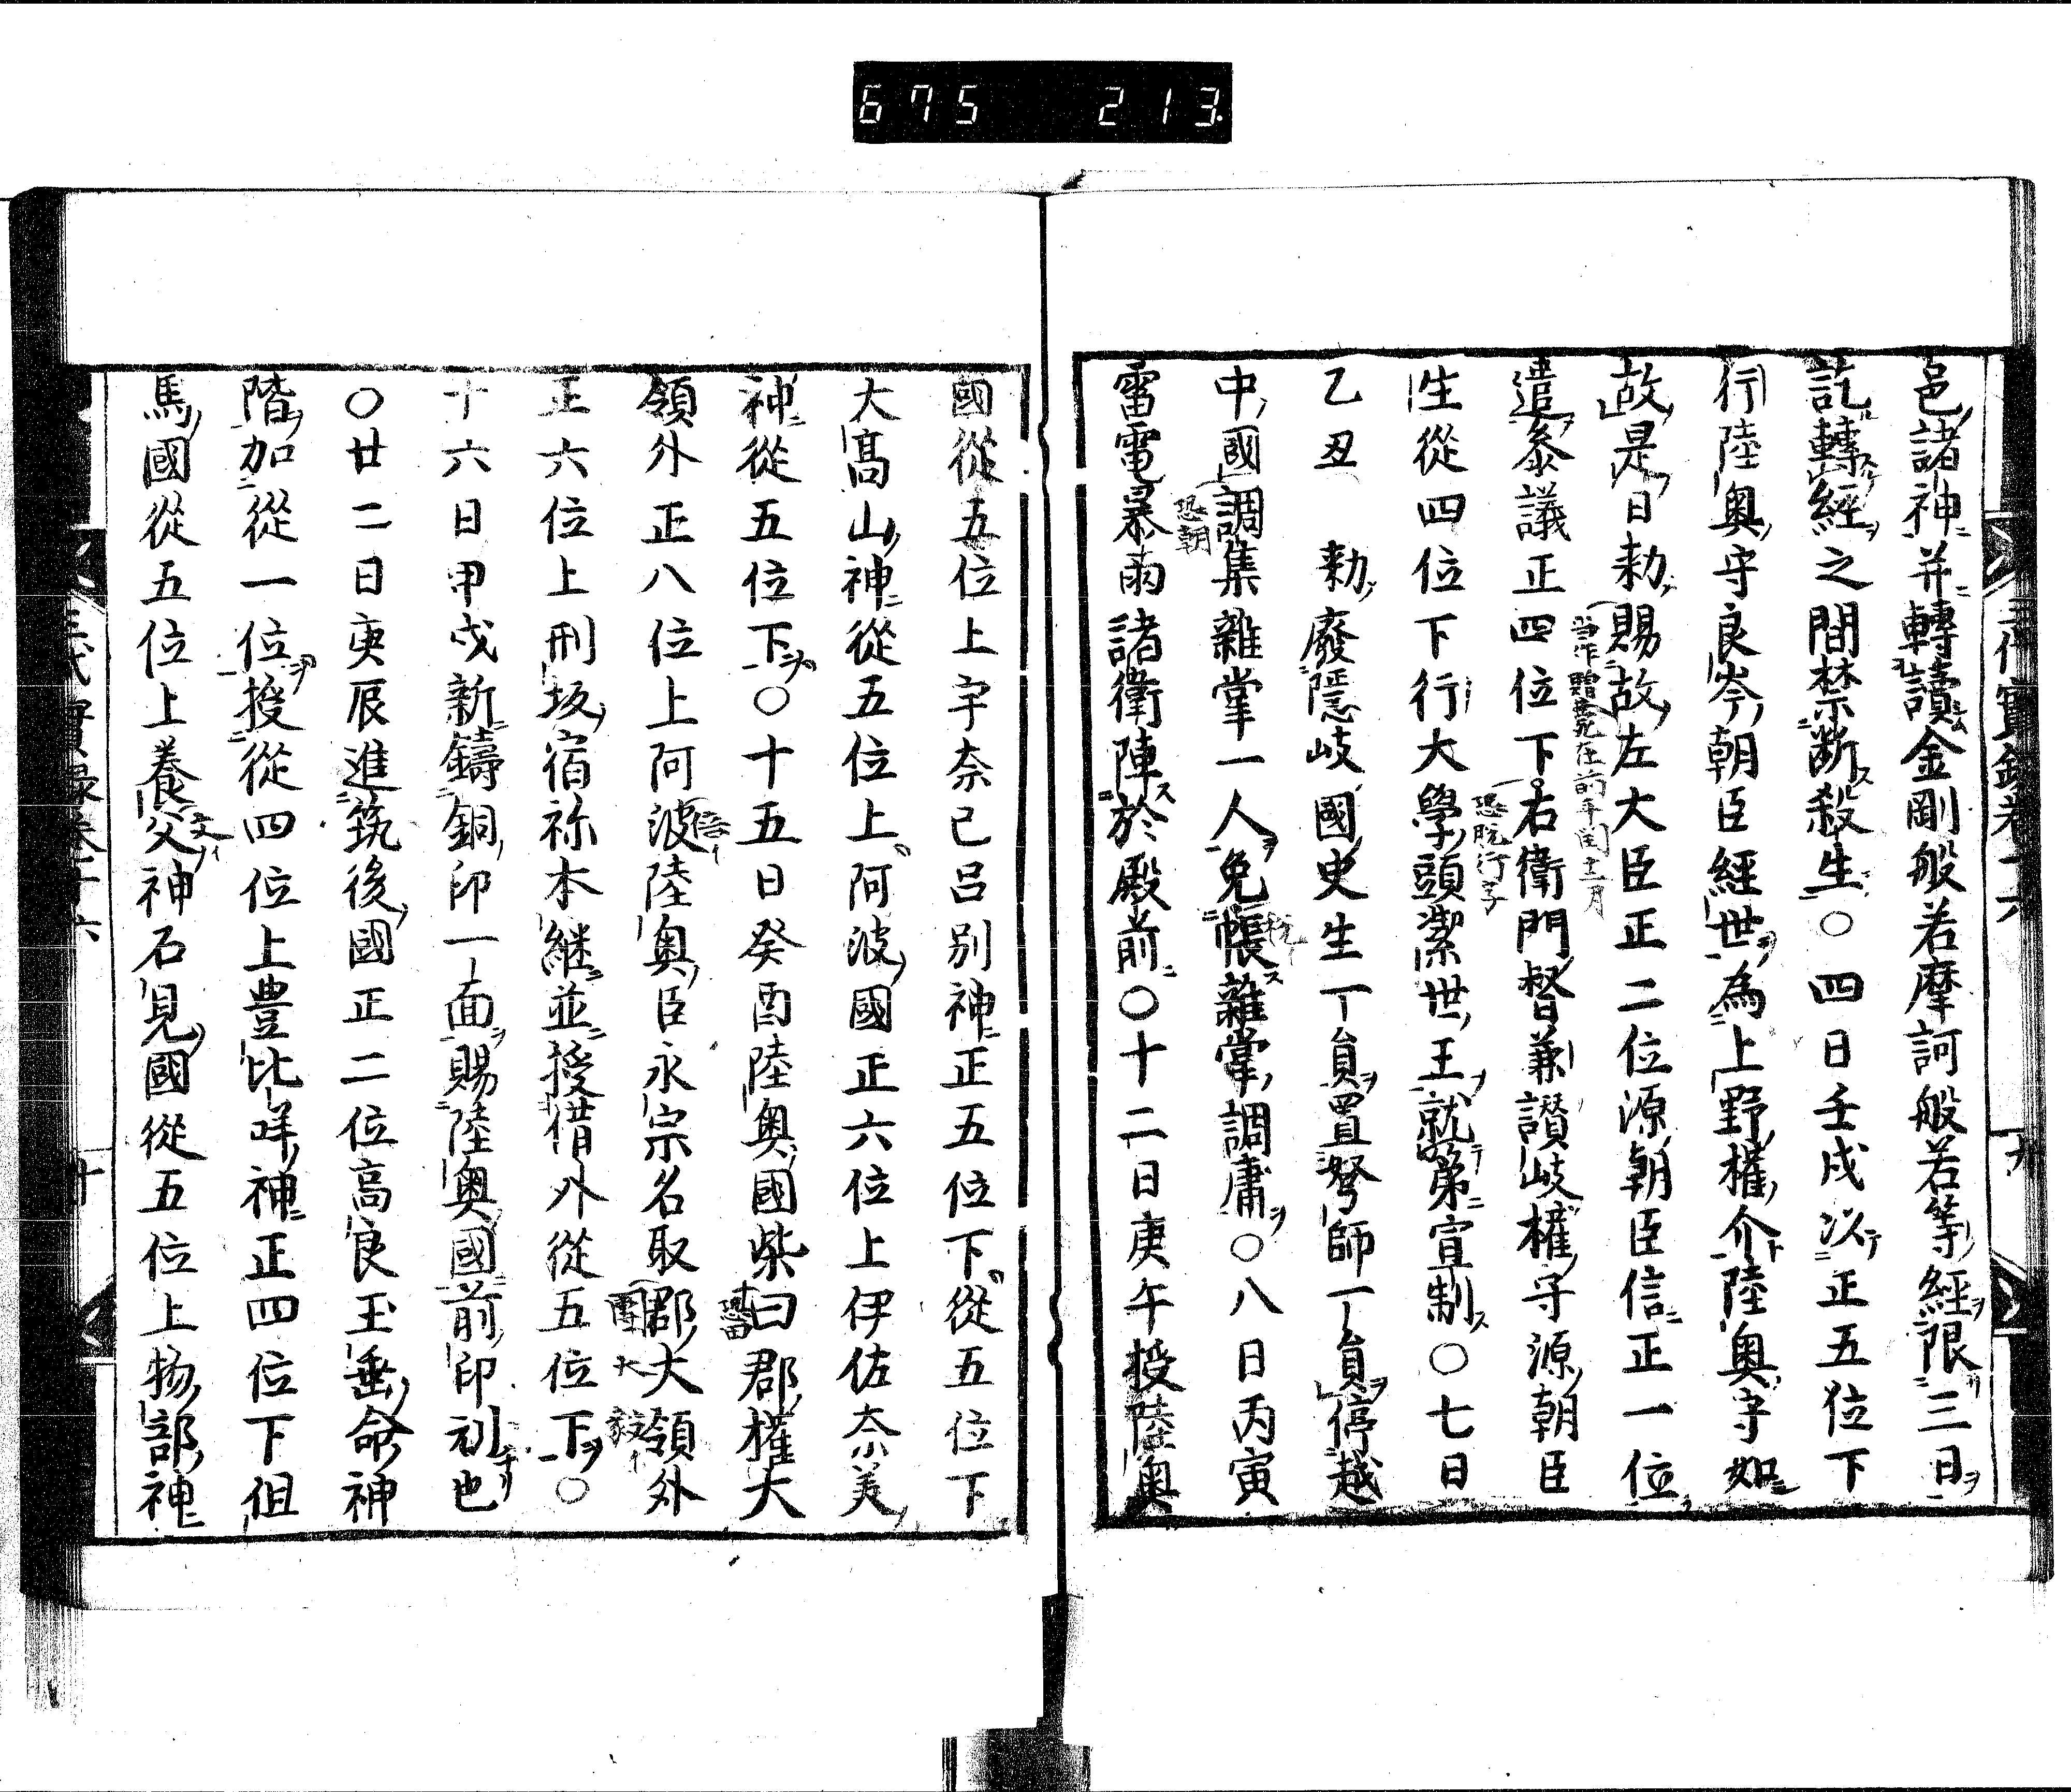 675 213
邑諸神并轉讀金剛般若摩訶般若等經限三日
訖轉經之間禁断殺生〇四日壬戌以正五位下
行陸奥守良岑朝臣經世為上野權介陸奥守如
故是日勑賜故左大臣正二位源朝臣信正一位
當作贈薨在前年閏十二月
遣參議正四位下右衛門督兼讃岐權守源朝臣
恐脱行字
生從四位下行大學頭潔世王就第宣制〇七日
乙丑 勑廢隱岐國史生一員置弩師一員停越
中國調集雜掌一人免帳雜掌調庸〇八日丙寅
恐朝
雷電暴雨諸衛陣於殿前〇十二日庚午授陸奥
國從五位上宇奈己呂別神正五位下從五位下
大髙山神從五位上阿波國正六位上伊佐奈美
神從五位下〇十五日癸酉陸奥國柴曰郡權大
恐田
領外正八位上阿波陸奥臣永宗名取郡大領外
團大毅
正六位上刑坂宿祢本継並授借外從五位下〇
十六日甲戌新鑄銅印一面賜陸奥國前印刓也
〇廿二日庚辰進筑後國正二位高良玉垂命神
階加從一位授從四位上豊比咩神正四位下但
馬國從五位上養父神石見國從五位上物部神
三代實録卷十六 十